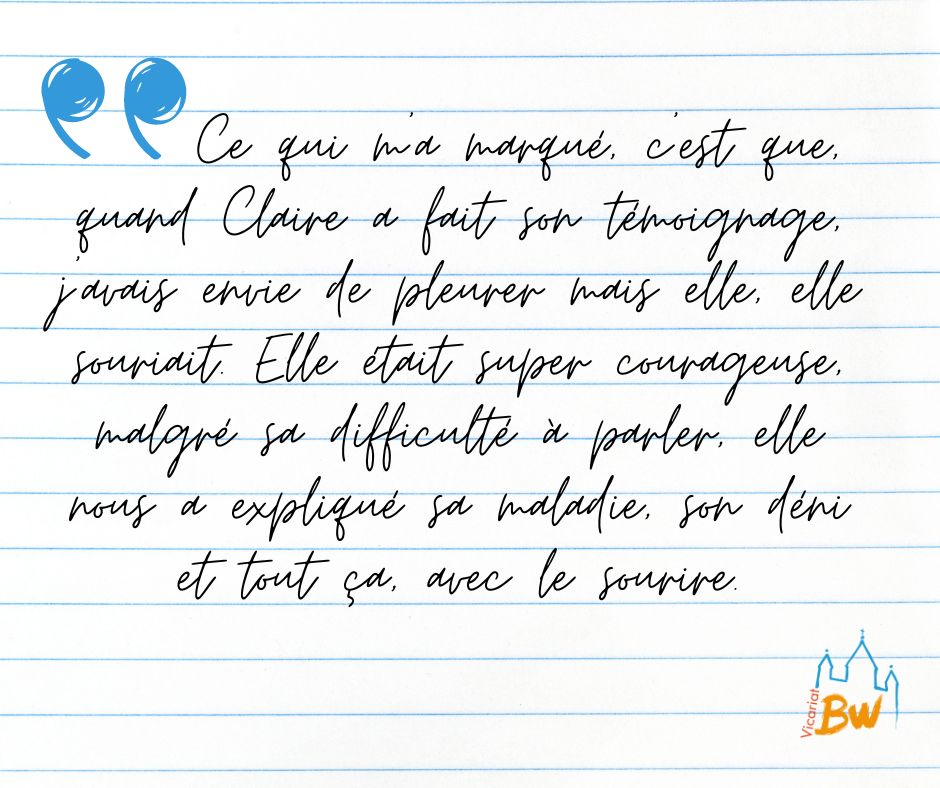 Ce qui m'a marqué, c'est que,
quand Claire a fait son témoignage,
j'avais envie de pleurer mais elle, elle
souriait. Elle était super courageuse,
malgré sa difficulté à parler, elle
nous a expliqué sa maladie, son déni
et tout ça, avec le sourire.
Vicariat
BW